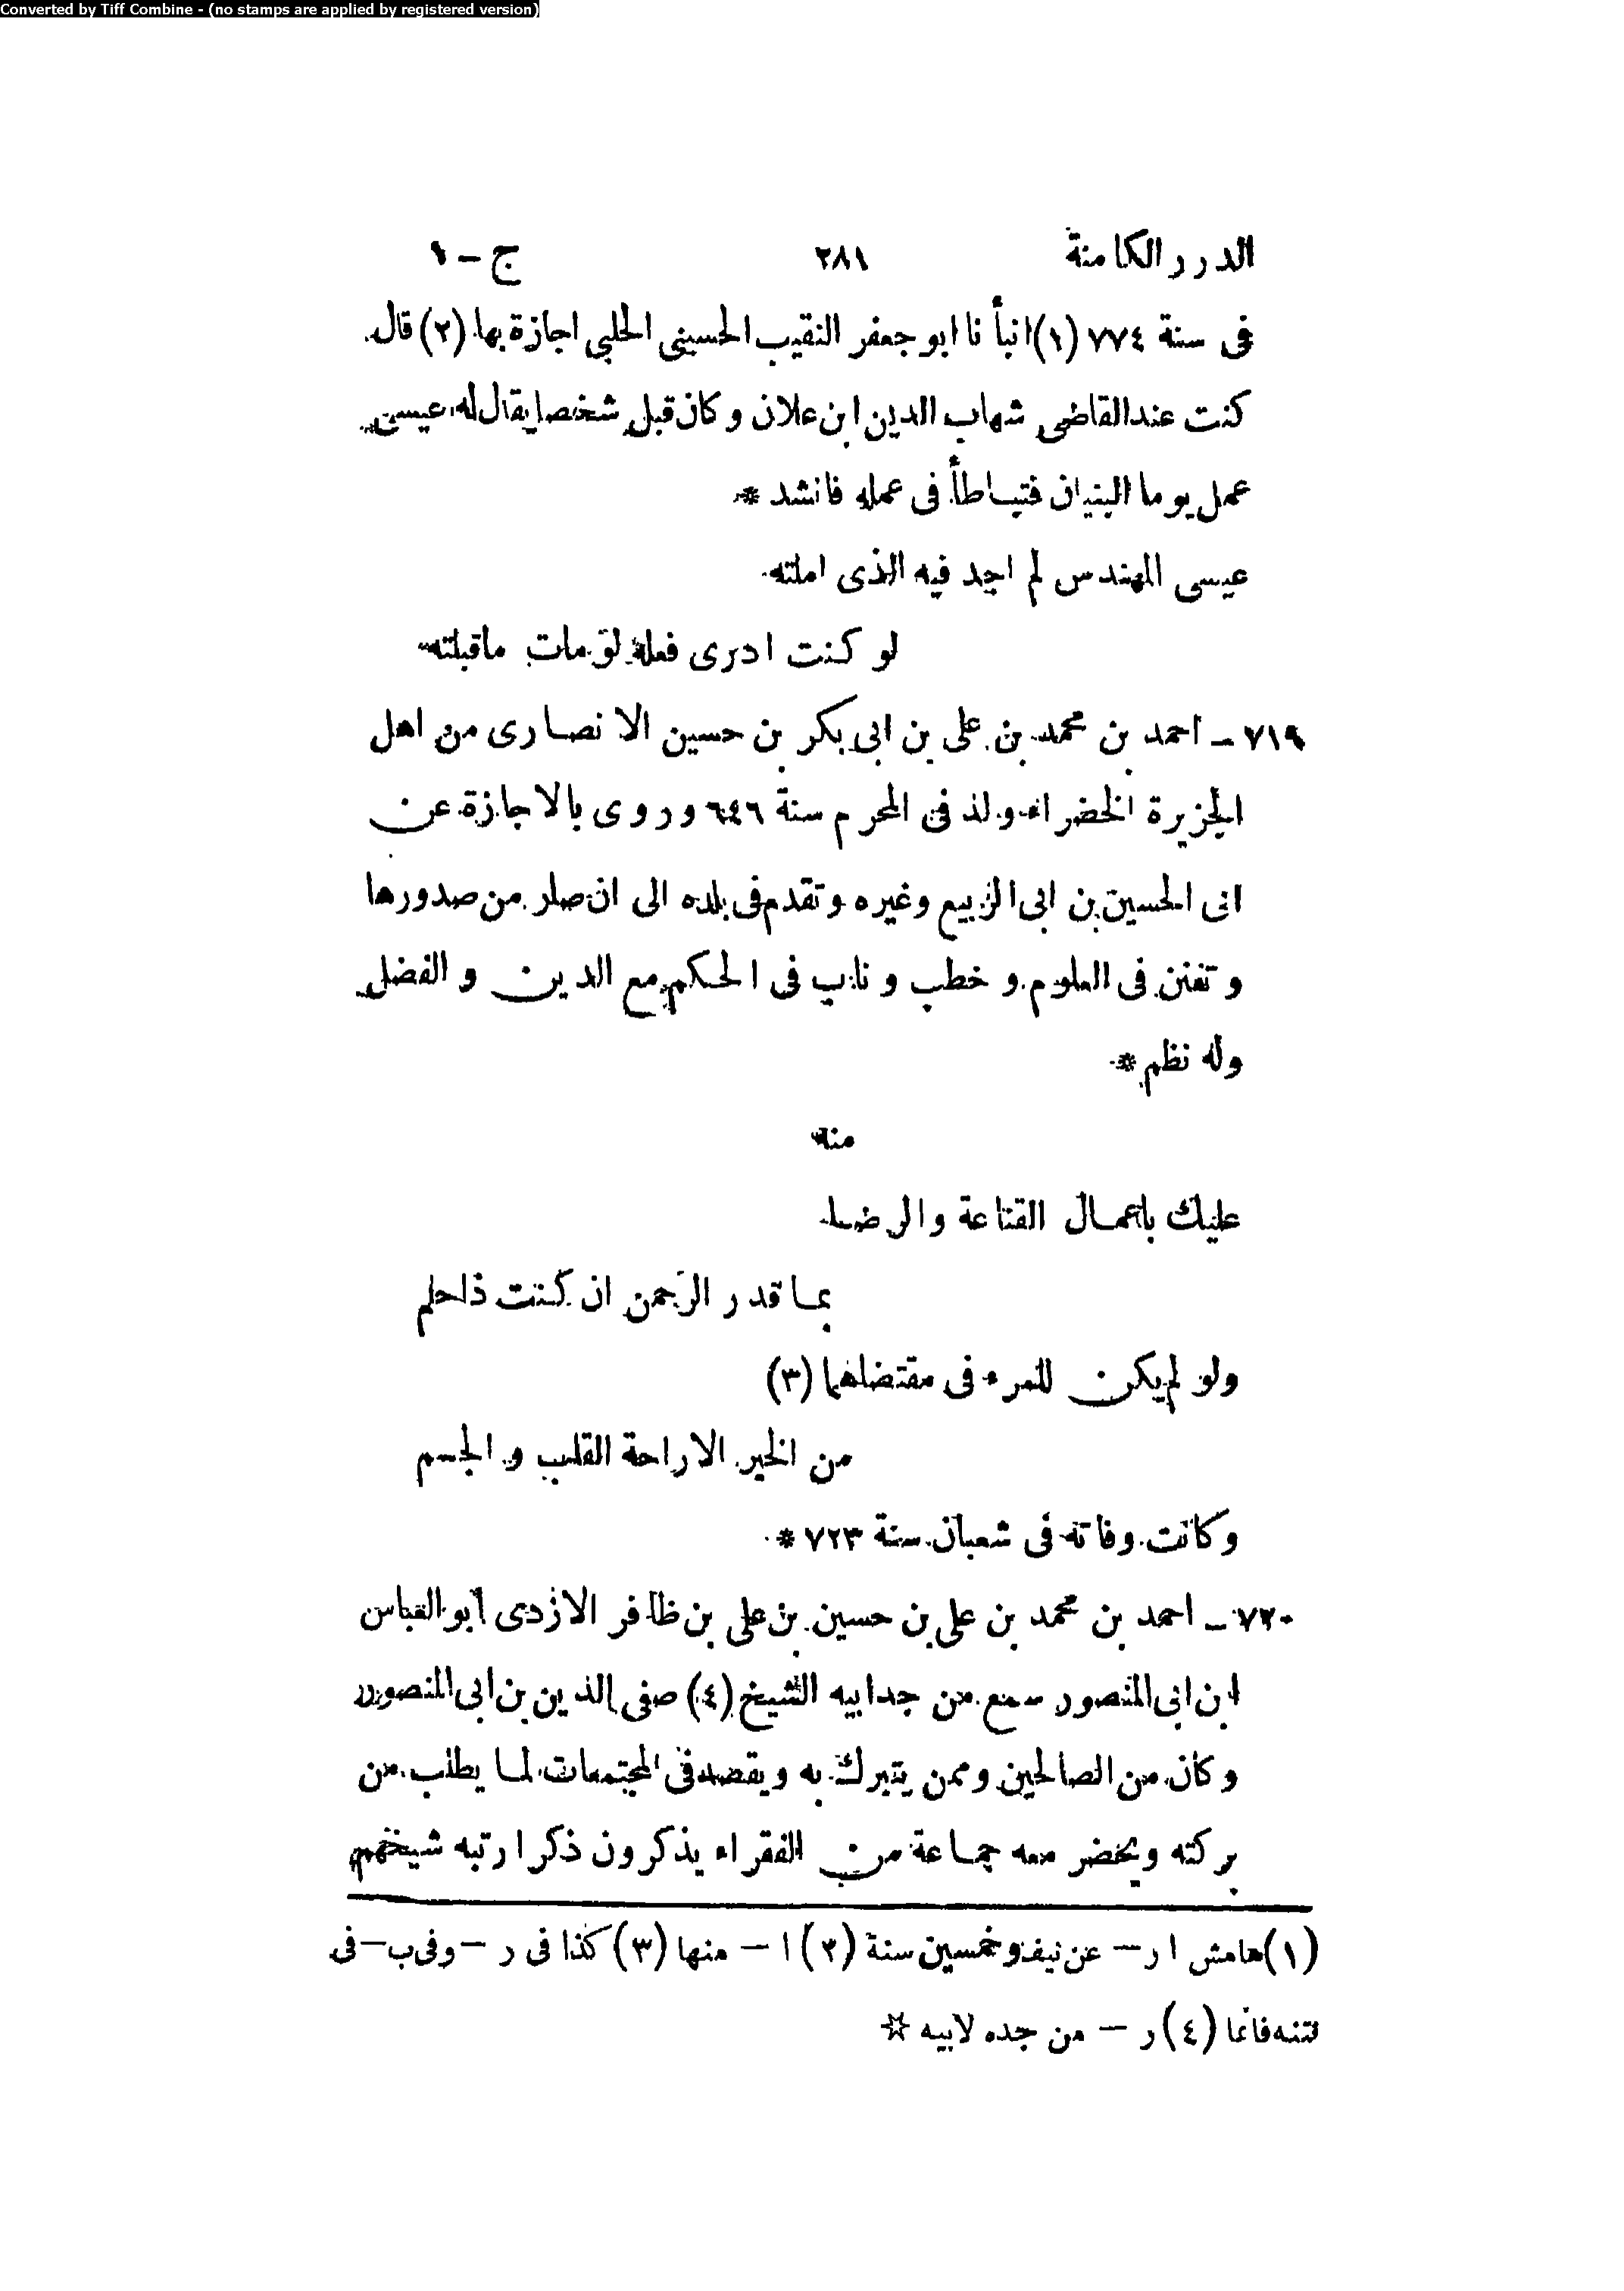 Converted by Tiff Combine - (no stamps are applied by registered version)
الدرر الكامنة ٢٨١ ج - ١
فى سنة ٧٧٤ (١) انبأنا ابو جعفر النقيب الحسينى الحلبي اجازة بها (٢) قال
كنت عند القاضى شهاب الدين ابن علان وكان قبل شخصا يقال له عيسى
عمل يوما البنيان فتباطأ فى عمله فانشد *
عيسى المهندس لم اجد فيه الذى املته
لو كنت ادرى فعله لو مات ماقبلته
٧١٩ - احمد بن محمد بن على بن ابى بكر بن حسين الانصارى من اهل
الجزيرة الخضراء ولد فى المحرم سنة ٦٤٦ وروى بالاجازة عن
ابى الحسين بن ابى الربيع وغيره وتقدم فى بلده الى ان صار من صدورها
وتفنن فى العلوم و خطب و ناب فى الحكم مع الدين و الفضل
وله نظم *
منه
عليك باعمال القناعة والرضا
بما قدر الرحمن ان كنت ذاحلم
ولو لم يكن للمرء فى مقتضاهما (٣)
من الخير الا راحة القلب و الجسم
وكانت وفاته فى شعبان سنة ٧٢٣ *
٧٢٠ - احمد بن محمد بن على بن حسين بن على بن ظافر الازدى ابو العباس
ابن ابى المنصور سمع من جد ابيه الشيخ (٤) صفى الدين بن ابى المنصور
وكان من الصالحين وممن يتبرك به ويقصد فى المجتمعات لما يطلب من
بركته ويحضر معه جماعة من الفقراء يذكرون ذكرا رتبه شيخهم
(١) هامش ا ر - عن نيف وخمسين سنة (٢) ا - منها (٣) كذا فى ر - وفى ب - فى
(٤) ر - من جده لابيه ☆